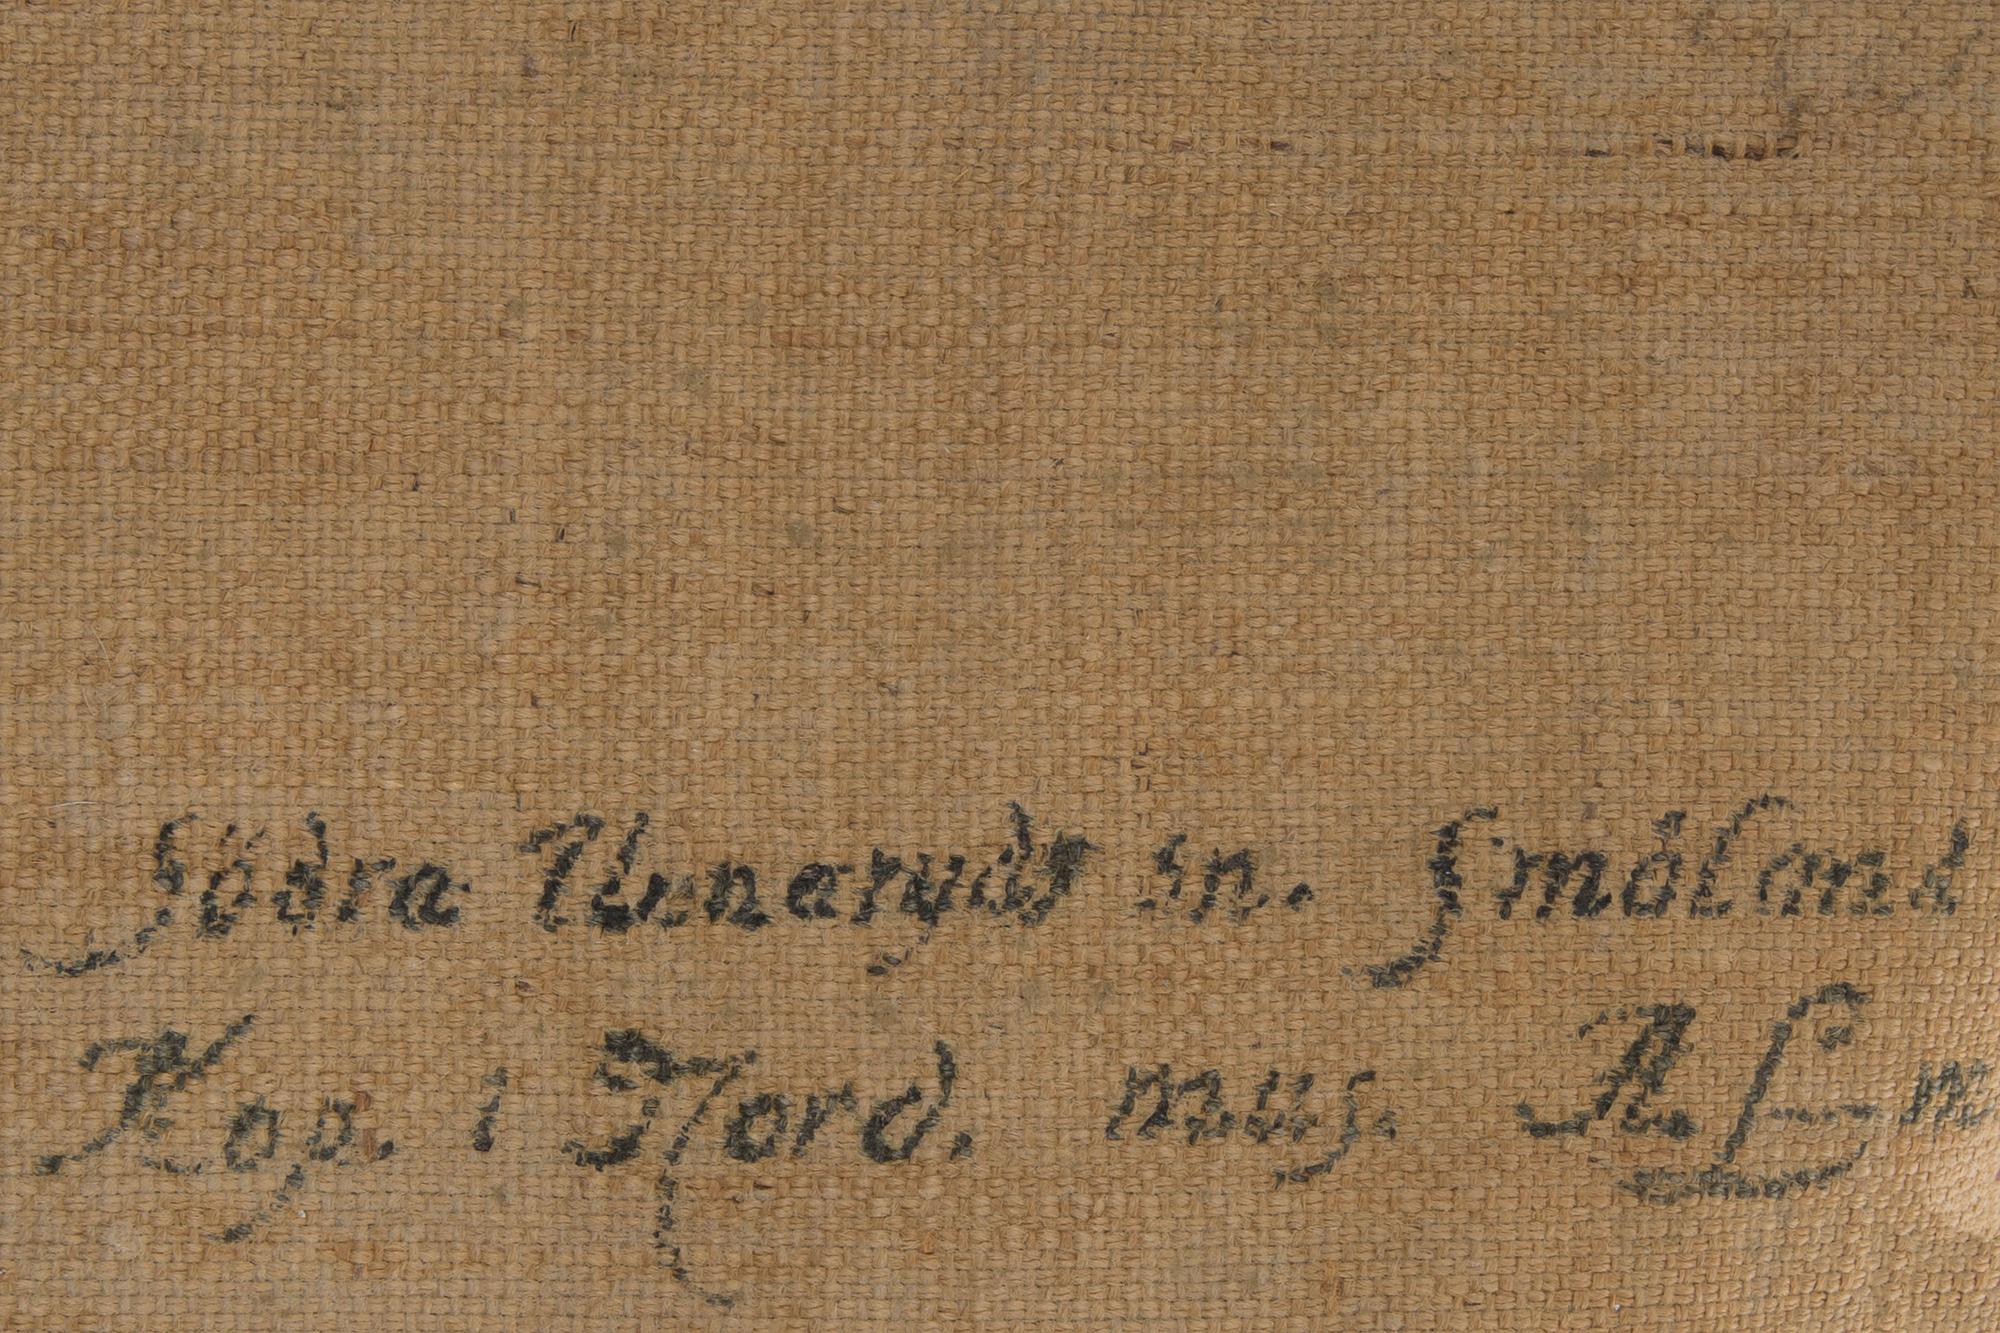 Södra Unnaryds sn. Småland
Kop. i Nord. mus.